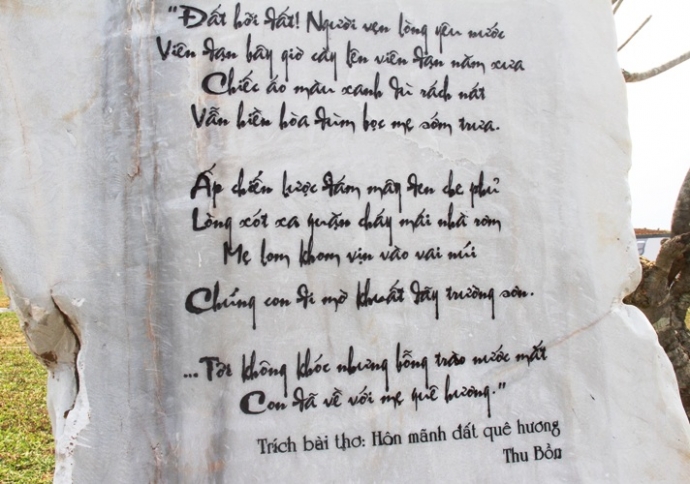 "Đất hỡi đất! Người vẹn lòng yêu nước
Viên đạn bây giờ cày lên viên đạn năm xưa
Chiếc áo màu xanh dù rách nát
Vẫn hiền hòa đùm bọc mẹ sớm trưa.
Ấp chiến lược đám mây đen che phủ
Lòng xót xa quặn cháy mái nhà rơm
Mẹ lom khom vịn vào vai núi
Chúng con đi mờ khuất dãy trường sơn.
... Tôi không khóc nhưng bỗng trào nước mắt
Con đã về với mẹ quê hương."
Trích bài thơ: Hôn mãnh đất quê hương
Thu Bồn